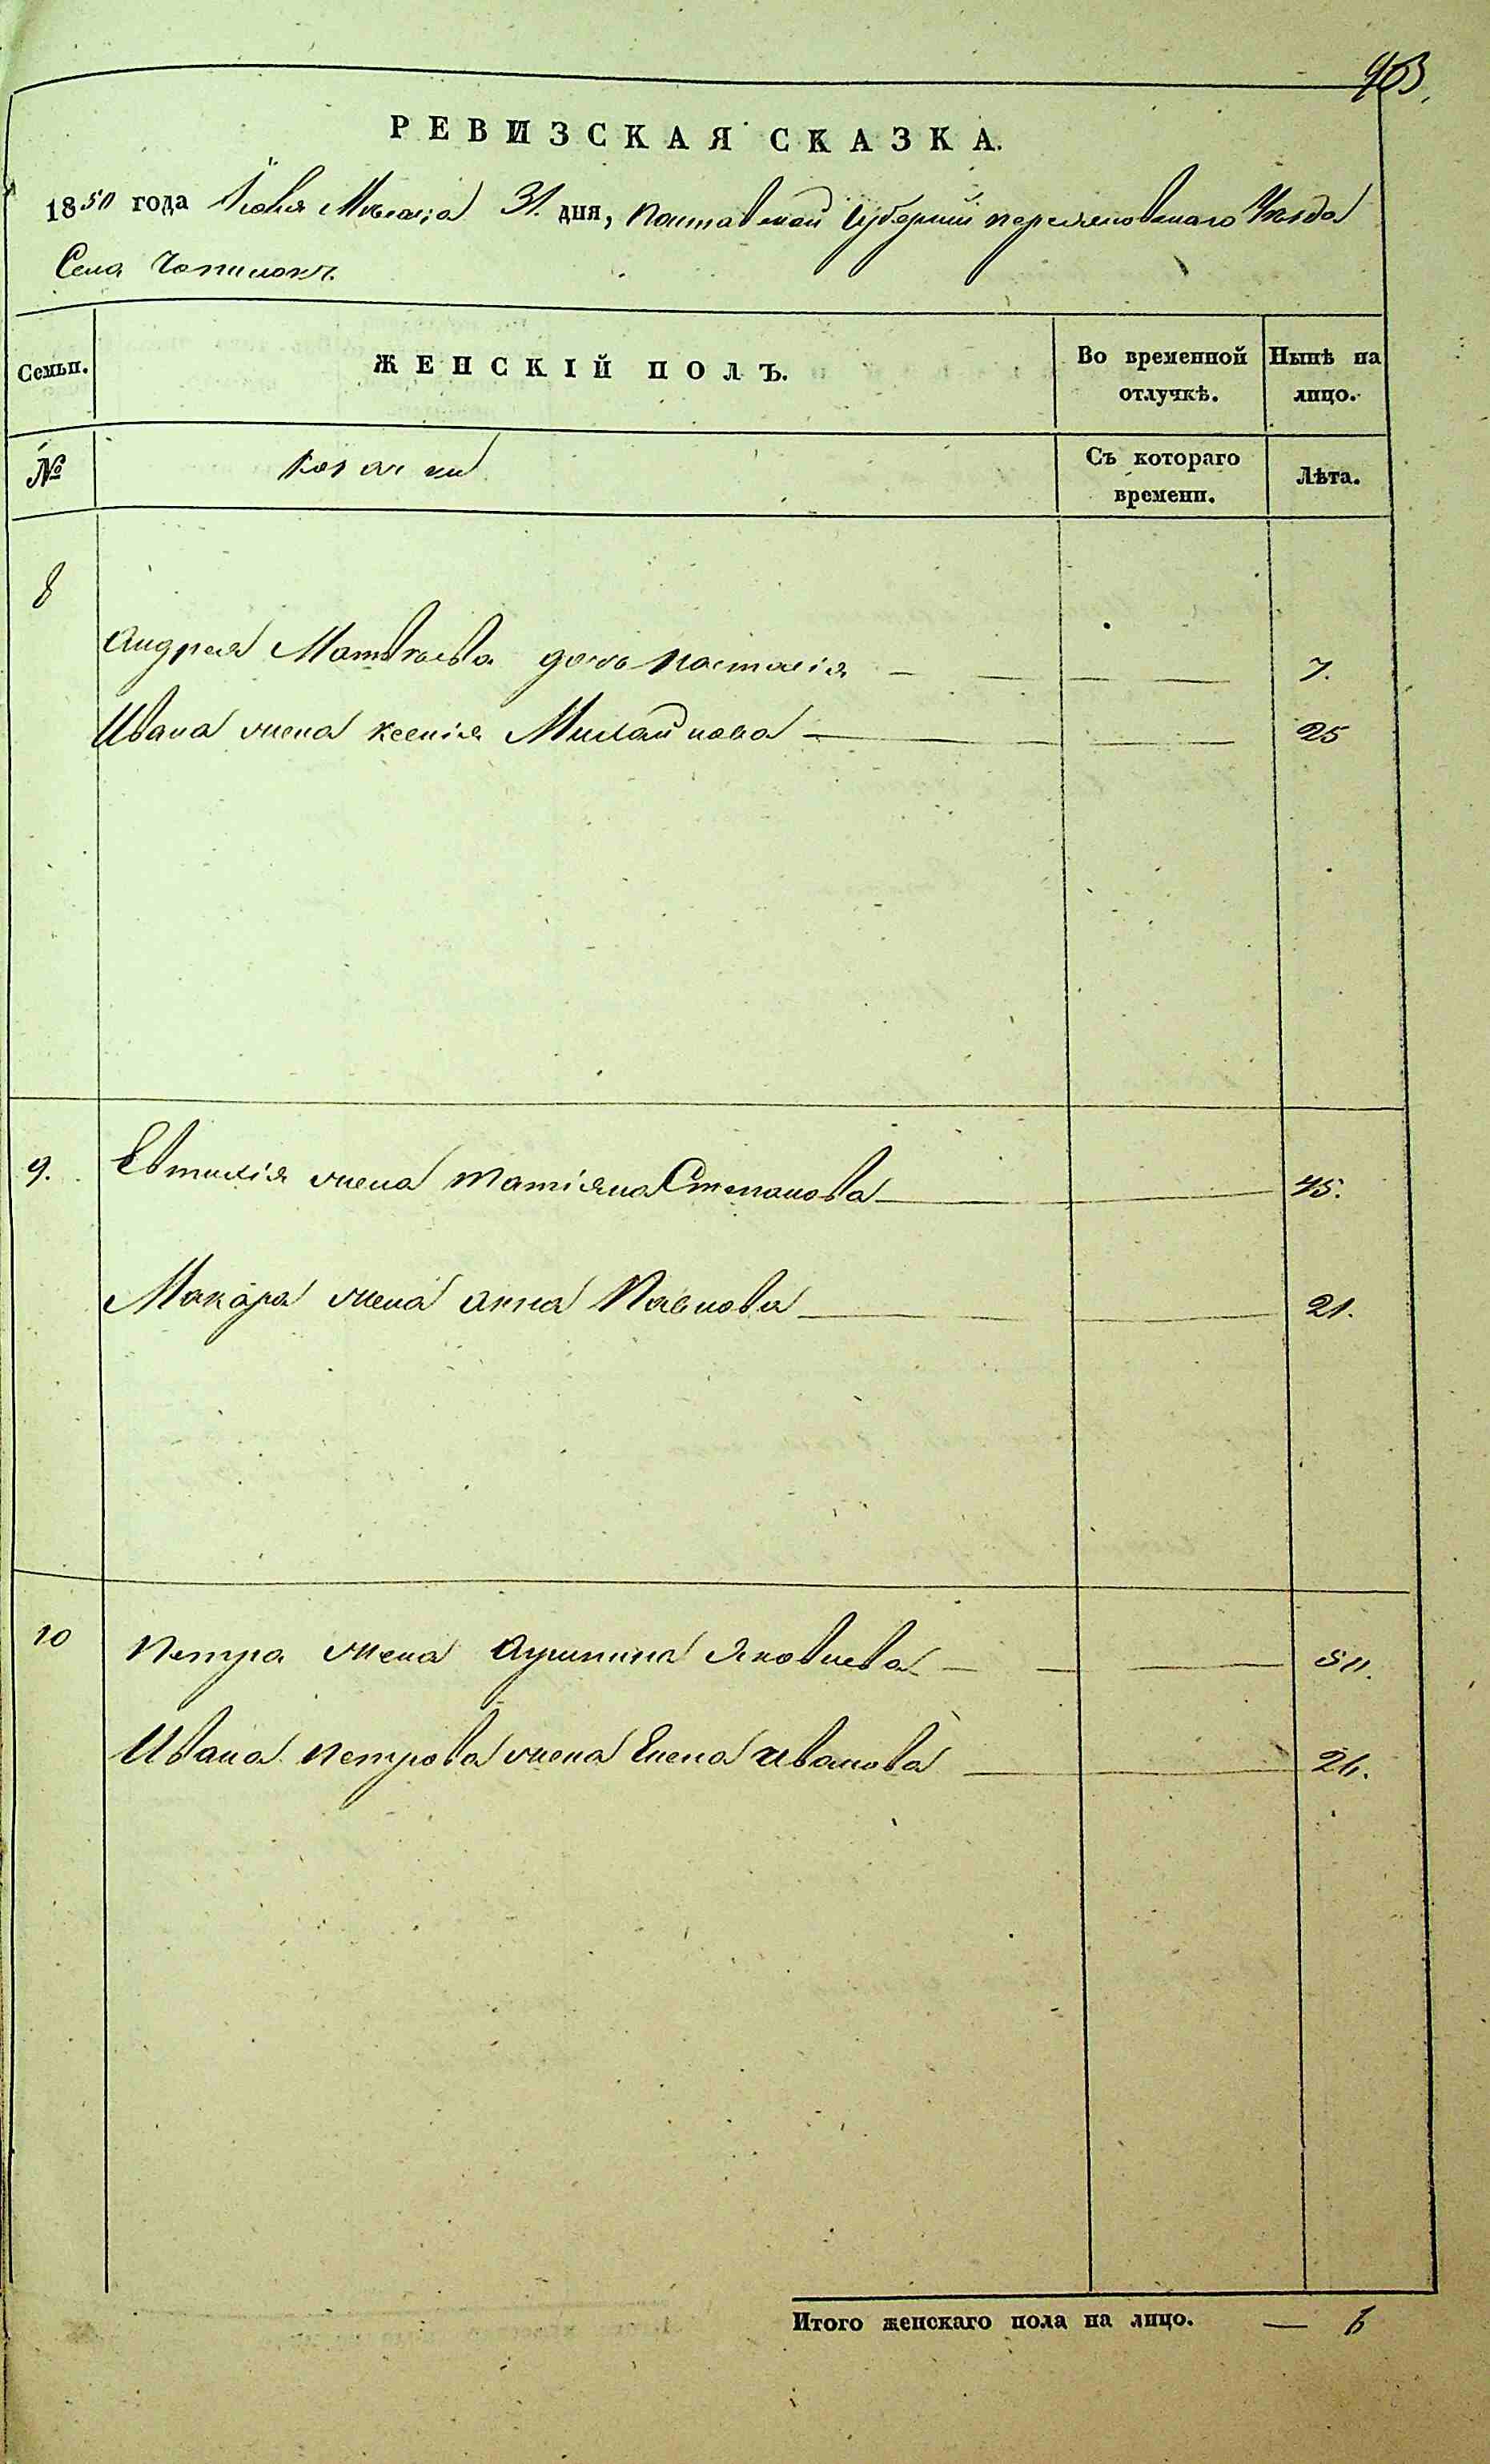 РЕВИЗСКАЯ СКАЗКА.
1850 года Іюля Мѣсяца 31. дня, Полтавской Губерніи переясловскаго Уѣзда
Села
Семьи.
ЖЕНСКІЙ ПОЛЪ.
Во временной отлучкѣ.
Нынѣ на лицо.
№
Козачки
Съ котораго времени.
Лѣта.
8
Андрея Матвѣева дочь Настасія 7.
Ивана жена Ксенія Михайлова 25
9. Евтихія жена татіяна Степанова 45.
Макара жена анна Павлова 21.
10 Петра жена Яковлева
Ивана Петрова жена Елена Иванова
Итого женскаго пола на лицо. — 6